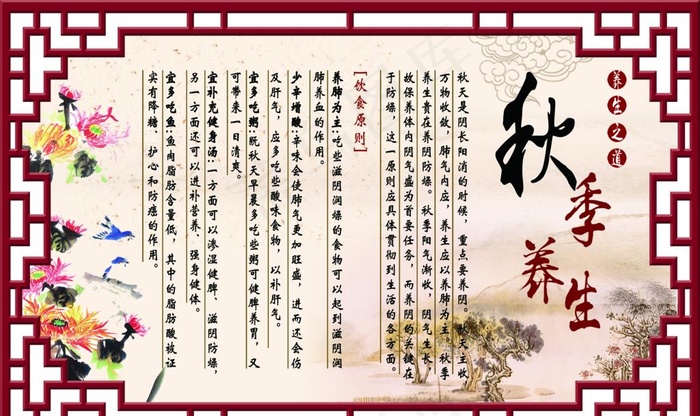 养生之道
秋季养生
秋天是阴长阳消的时候，重点要养阴。秋天主收，
万物收敛，肺气内应，养生应以养肺为主。秋季
养生贵在养阴防燥。秋季阳气渐收，阴气生长，
故保养体内阴气盛为首要任务，而养阴的关键在
于防燥，这一原则应具体贯彻到生活的各方面。
[饮食原则]
养肺为主:吃些滋阴润燥的食物可以起到滋阴润
肺养血的作用。
少辛增酸:辛味会使肺气更加旺盛，进而还会伤
及肝气，应多吃些酸味食物，以补肝气。
宜多吃粥:既秋天早晨多吃些粥可健脾养胃，又
可带来一日清爽。
宜补充健身汤:一方面可以渗湿健脾、滋阴防燥，
另一方面还可以进补营养、强身健体。
宜多吃鱼:鱼肉脂肪含量低，其中的脂肪酸被证
实有降糖、护心和防癌的作用。